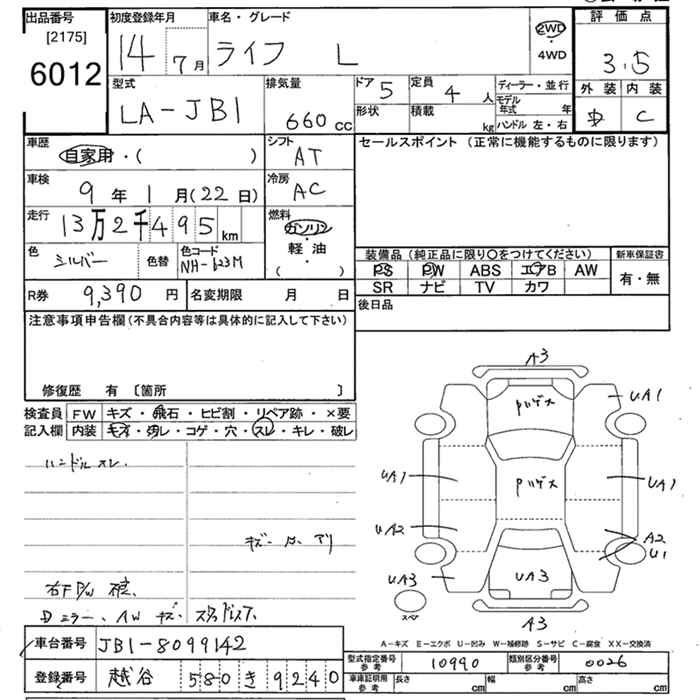 出品番号 初度登録年月 車名・グレード 評価点
[2175]
6012
14 7月 ライフ L 2WD・4WD 3.5
型式 排気量 ドア 5 定員 4人 ディーラー・並行 外装 内装
LA-JB1 660cc 形状 積載 kg モデル年式 年 C
ハンドル 左・右
車歴 シフト セールスポイント (正常に機能するものに限ります)
自家用・( ) AT
車検 冷房
9年1月(22日) AC
走行 燃料
13万2千495km ガソリン・軽油・( )
色 色替 色コード
シルバー NH-623M
装備品 (純正品に限り○をつけてください) 新車保証書
PS PW ABS エアB AW 有・無
SR ナビ TV カワ
R券 9,390円 名変期限 月 日 後日品
注意事項申告欄 (不具合内容等は具体的に記入して下さい)
修復歴 有 〔箇所 〕
検査員 FW キズ・飛石・ヒビ割・リペア跡・×要
記入欄 内装 キズ・汚レ・コゲ・穴・スレ・キレ・破レ
ハンドルスレ
右F P/W
Dミラー、AWキズ
A3
Pハゲス UA1
UA1 Pハゲス UA1
UA2 A2
U1
UA3 UA3
スペア A3
A-キズ E-エクボ U-凹み W-補修跡 S-サビ C-腐食 XX-交換済
車台番号 JB1-8099142
型式指定番号 参考 10990 類別区分番号 参考 0026
登録番号 越谷 580 き 9240
車庫証明用 参考 長さ cm 幅 cm 高さ cm